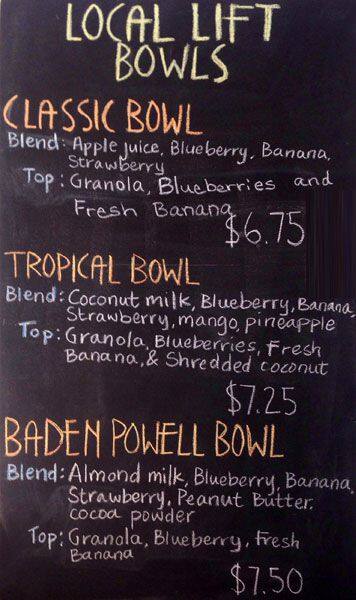 LOCAL LIFT
BOWLS
CLASSIC BOWL
Blend: Apple juice, Blueberry, Banana,
Strawberry
Top: Granola, Blueberries and
Fresh Banana
$6.75
TROPICAL BOWL
Blend: Coconut milk, Blueberry, Banana,
Strawberry, mango, pineapple
Top: Granola, Blueberries, Fresh
Banana, & Shredded coconut
$7.25
BADEN POWELL BOWL
Blend: Almond milk, Blueberry, Banana,
Strawberry, Peanut Butter,
cocoa powder
Top: Granola, Blueberry, Fresh
Banana
$7.50